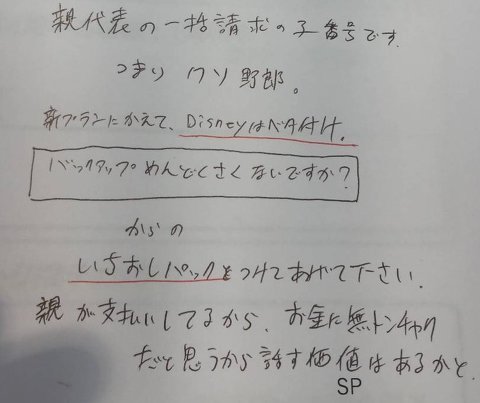 親代表の一括請求の子番号です。
つまり クソ野郎。
新プランにかえて、Disneyはベタ付け。
バックアップめんどくさくないですか?
からの
いちおしパックをつけてあげて下さい。
親が支払いしてるから、お金に無トンチャク
だと思うから話す価値はあるかと。
SP